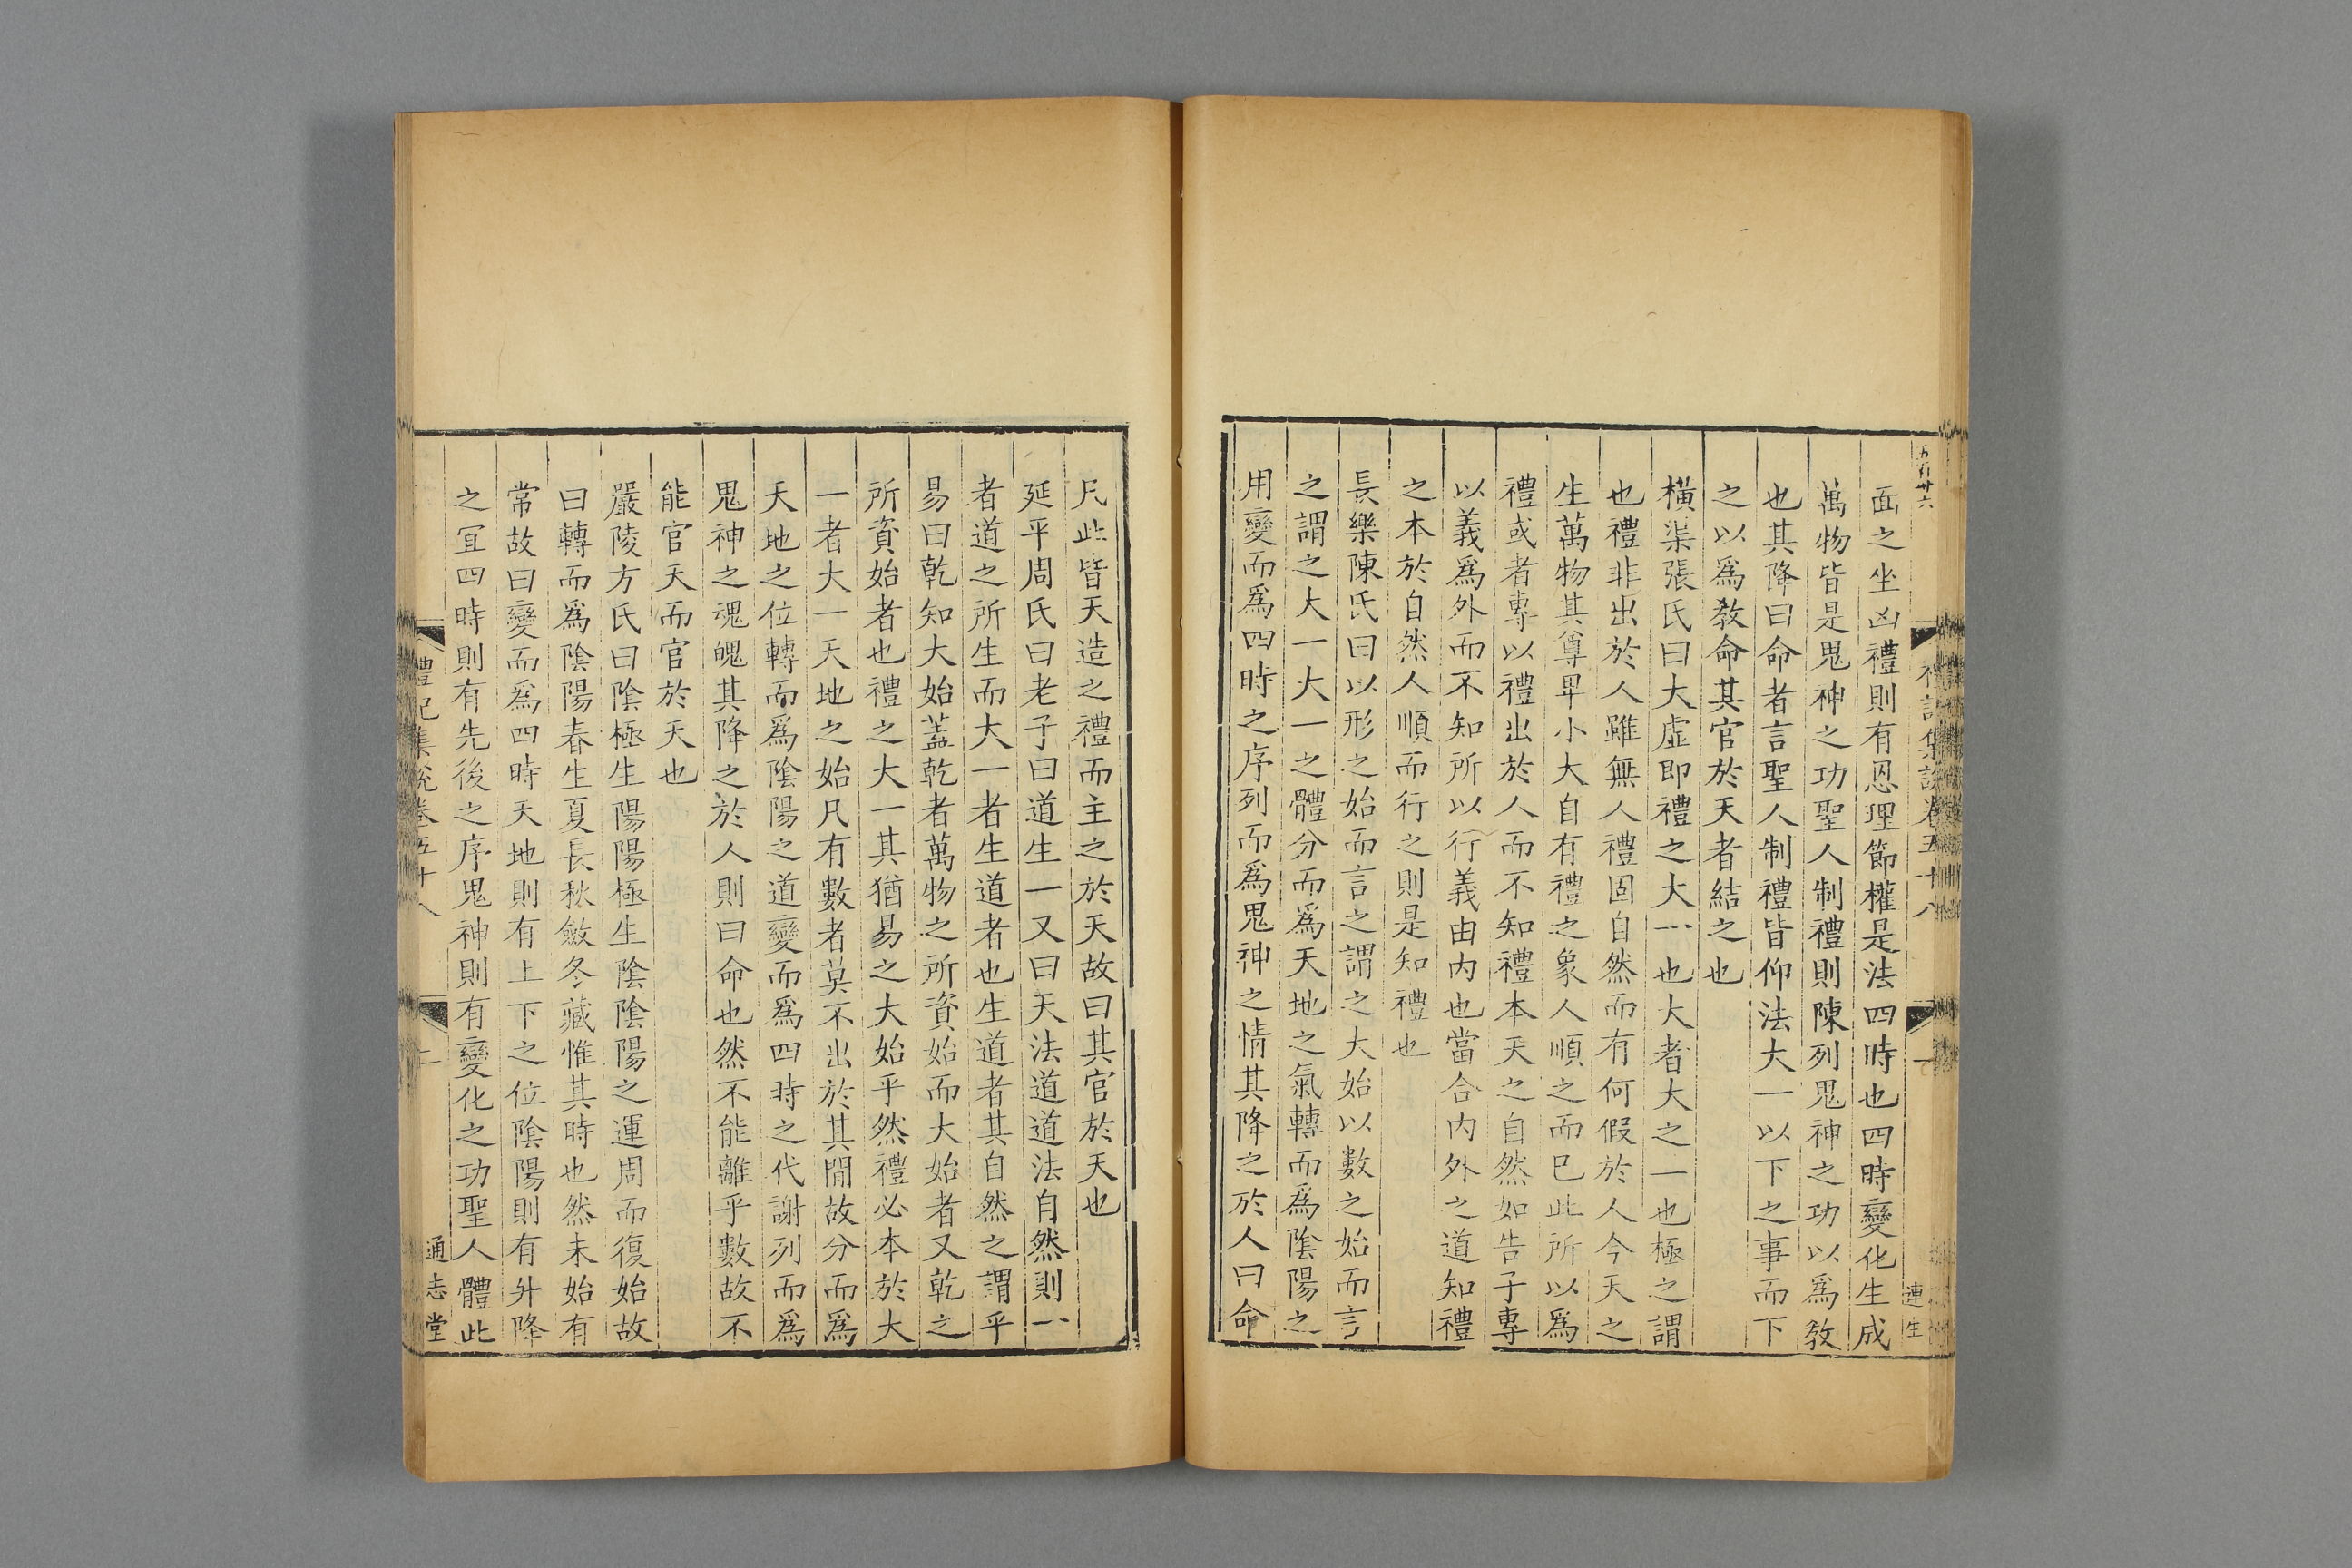 五百廿六
禮記集說卷五十八
一
連生
面之坐凶禮則有恩理節權是法四時也四時變化生成
萬物皆是鬼神之功聖人制禮則陳列鬼神之功以爲教
也其降曰命者言聖人制禮皆仰法大一以下之事而下
之以爲教命其官於天者結之也
橫渠張氏曰大虛即禮之大一也大者大之一也極之謂
也禮非出於人雖無人禮固自然而有何假於人今天之
生萬物其尊卑小大自有禮之象人順之而已此所以爲
禮或者專以禮出於人而不知禮本天之自然如告子專
以義爲外而不知所以行義由內也當合內外之道知禮
之本於自然人順而行之則是知禮也
長樂陳氏曰以形之始而言之謂之大始以數之始而言
之謂之大一大一之體分而爲天地之氣轉而爲陰陽之
用變而爲四時之序列而爲鬼神之情其降之於人曰命
凡此皆天造之禮而主之於天故曰其官於天也
延平周氏曰老子曰道生一又曰天法道道法自然則一
者道之所生而大一者生道者也生道者其自然之謂乎
易曰乾知大始蓋乾者萬物之所資始而大始者又乾之
所資始者也禮之大一其猶易之大始乎然禮必本於大
一者大一天地之始凡有數者莫不出於其間故分而爲
天地之位轉而爲陰陽之道變而爲四時之代謝列而爲
鬼神之魂魄其降之於人則曰命也然不能離乎數故不
能官天而官於天也
嚴陵方氏曰陰極生陽陽極生陰陰陽之運周而復始故
曰轉而爲陰陽春生夏長秋斂冬藏惟其時也然未始有
常故曰變而爲四時天地則有上下之位陰陽則有升降
之宜四時則有先後之序鬼神則有變化之功聖人體此
禮記集說卷五十八
二
通志堂